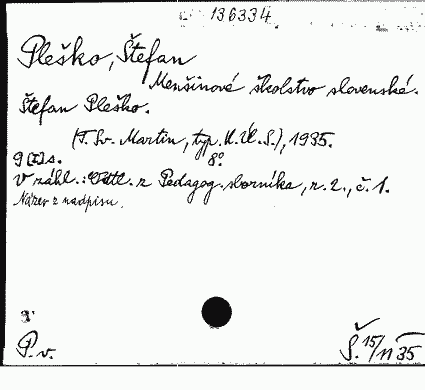 136334
Pleško, Štefan
Menšinové školstvo slovenské.
Štefan Pleško.
(T. Sv. Martin, typ. K. Ú. S.), 1935.
9 [I] s. 8°
V záhl.: Odtl. z Pedagog. sborníka, r. 2., č. 1.
Název z nadpisu.
P. v.
Š. 15/11 35